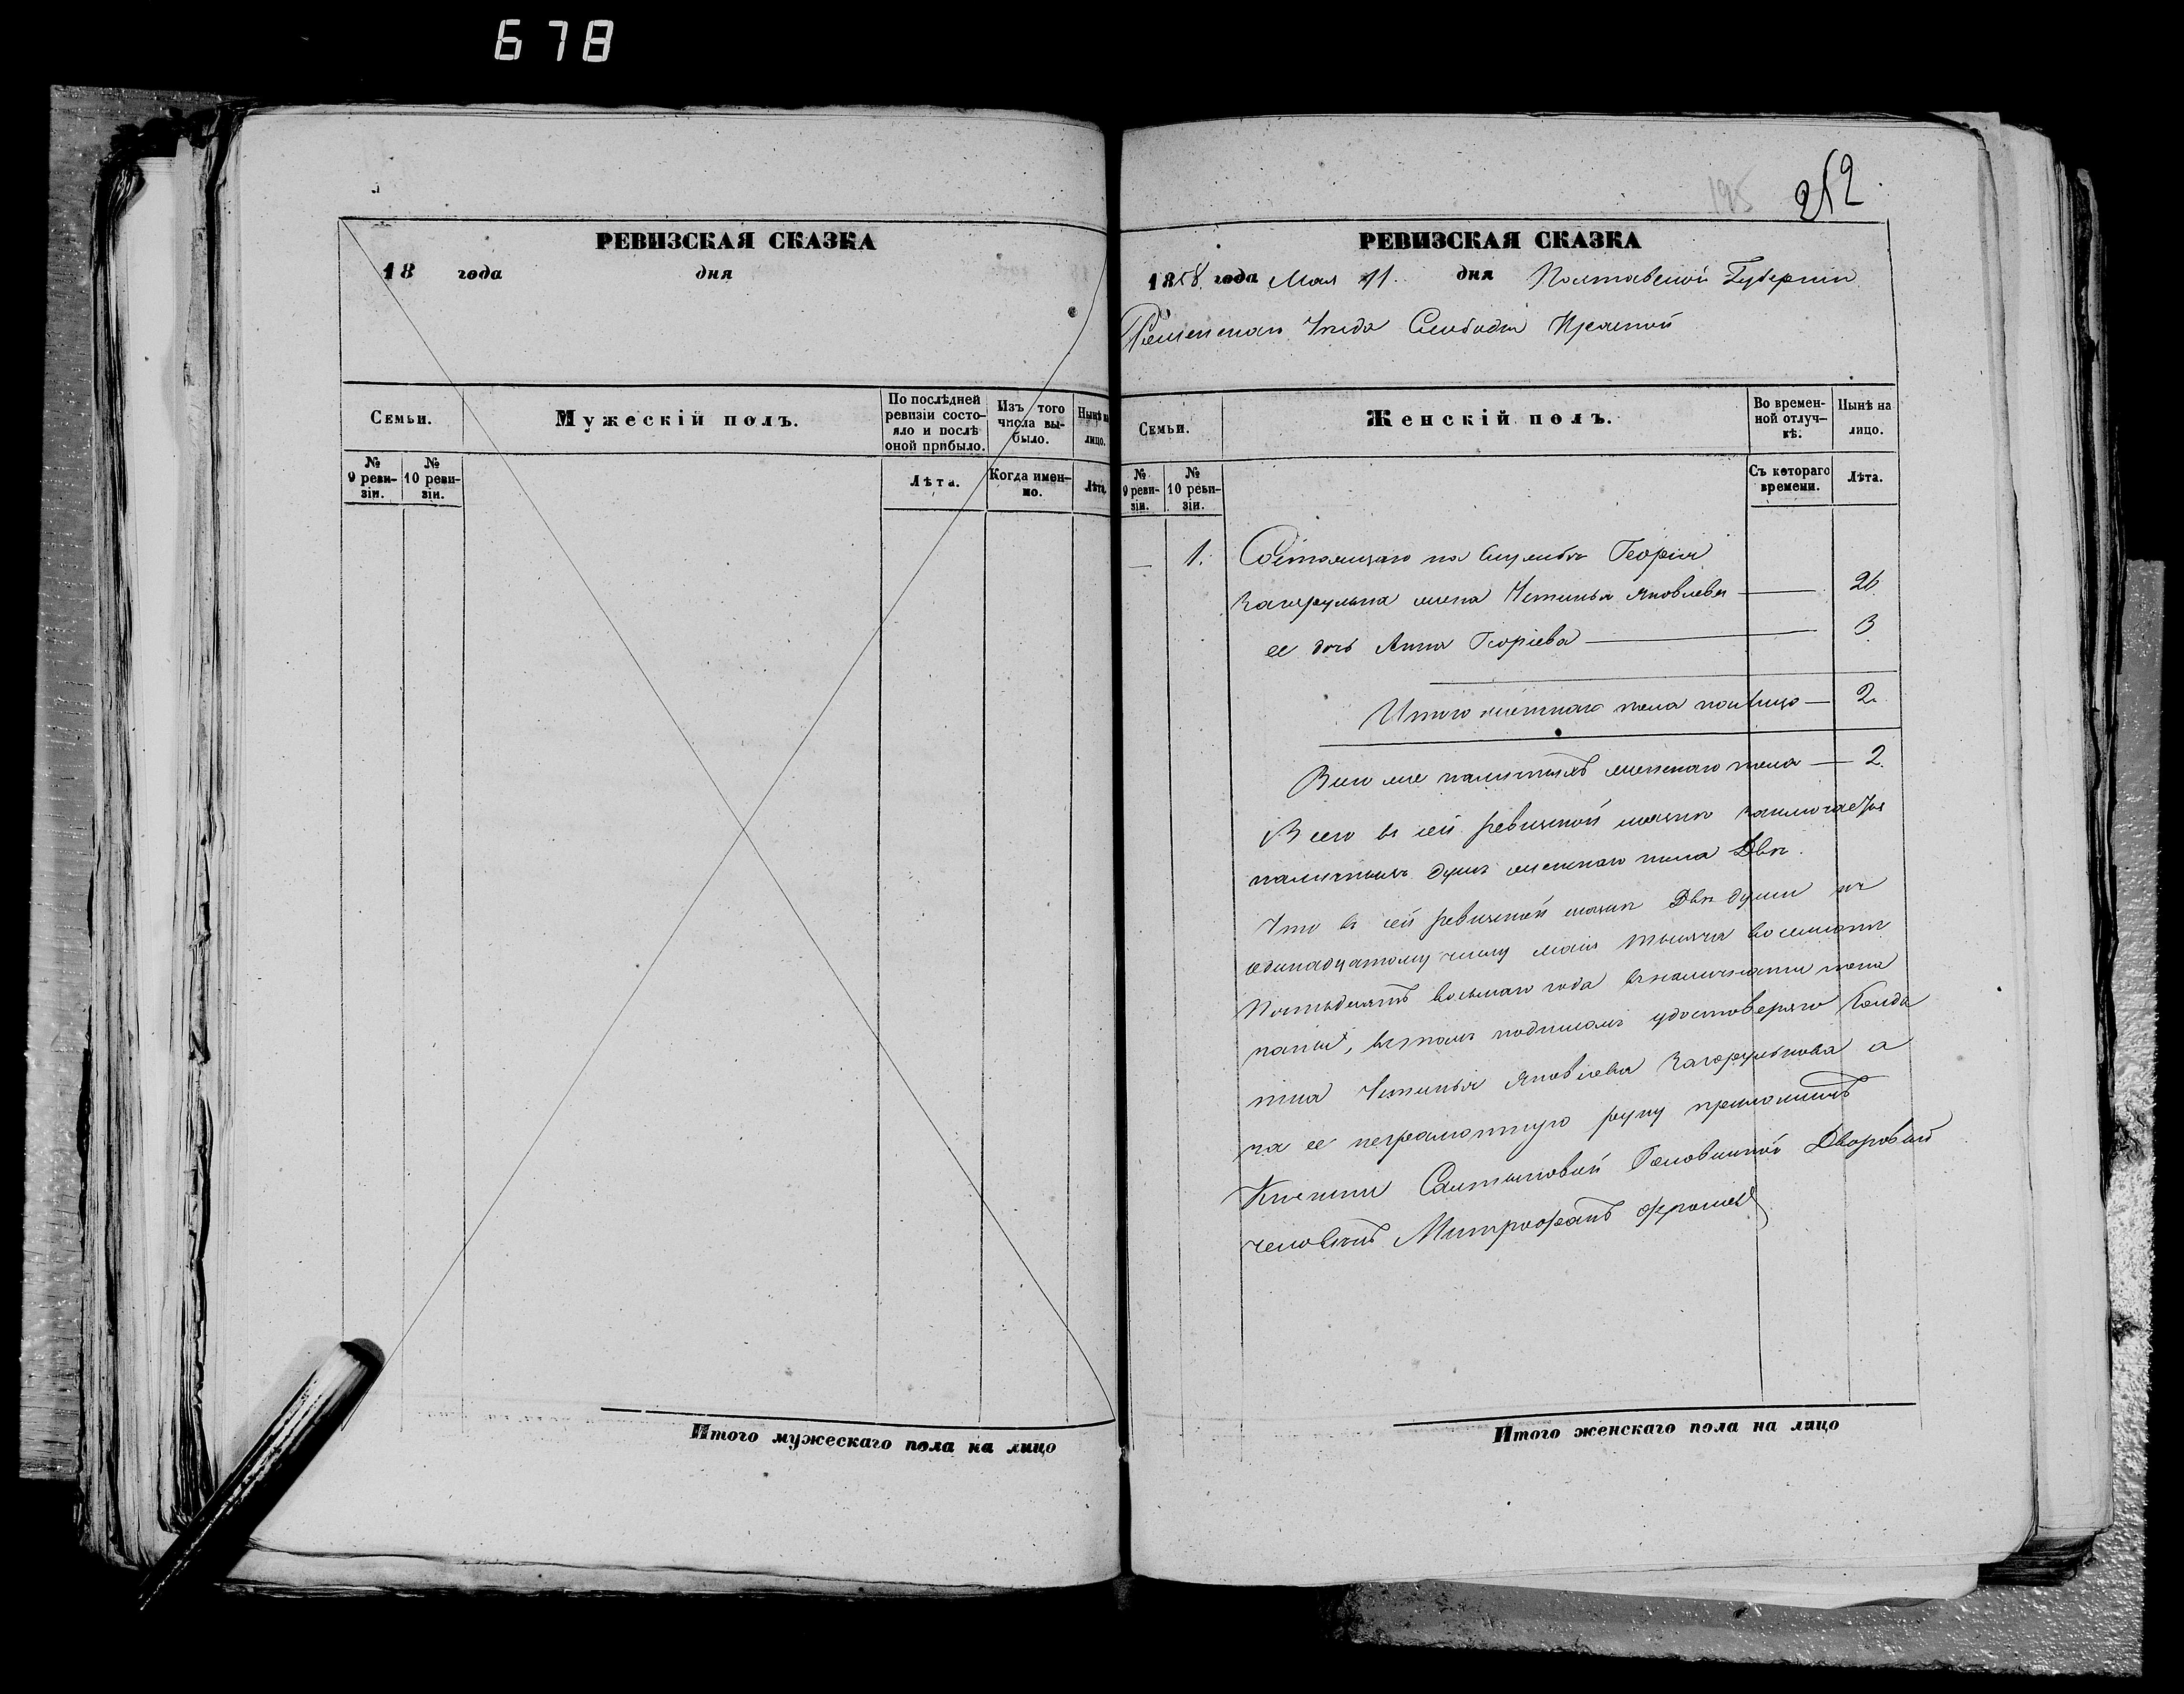 678
195 252
РЕВИЗСКАЯ СКАЗКА
18 года дня
Семьи.
Мужескій полъ.
По послѣдней ревизіи состояло и послѣ оной прибыло.
Изъ того числа выбыло.
Нынѣ на лицо.
№ 9 ревизіи.
№ 10 ревизіи.
Лѣта.
Когда именно.
Лѣта.
Итого мужескаго пола на лицо
РЕВИЗСКАЯ СКАЗКА
1858 года Мая 11. дня Полтавской Губерніи
Роменскаго Уѣзда Слободы
Семьи.
Женскій полъ.
Во временной отлучкѣ.
Нынѣ на лицо.
№ 9 ревизіи.
№ 10 ревизіи.
Съ котораго времени.
Лѣта.
— 1. Состоящаго на службѣ Георгія
жена Устинья Яковлева — 26
ее дочь Анна Георгіева — 3
Итого женскаго пола на лицо — 2.
женскаго пола — 2.
Всего въ сей ревизской сказкѣ заключается
наличныхъ душъ женскаго пола Двѣ.
Что въ сей ревизской сказкѣ Двѣ души къ
одинадцатому числу мая тысяча восемсотъ
Пятьдесятъ восьмаго года въ наличности
въ томъ подписомъ удостоверяю Солда
тка Устинья Яковлева а
за ее неграмотную руку приложилъ
Княгини Салтыковой Головкиной Дворовый
человѣкъ Митрофанъ
Итого женскаго пола на лицо